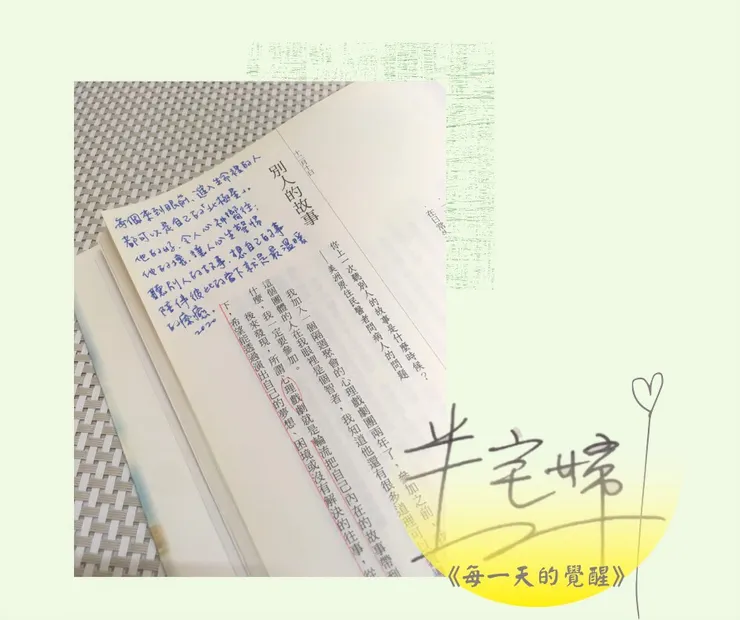 每個來到眼前、進入生命裡的人
都可以是自己的北極星。
他的好，令人心神嚮往；
他的壞，讓人心生警惕
聽別人的故事，想自己的事
陪伴彼此的當下就是最溫暖
的療癒。
2020
別人的故事
你上一次聽別人的故事是什麼時候？
——美洲原住民醫者問病人的問題
我加入一個隔週聚會的心理戲劇團兩年了，參加之前
這個團體的人在我眼裡是個智者，我知道他還有很多道理可
什麼，我一定要參加。
後來發現，所謂心理戲劇就是輪流把自己內在的故事帶
下，希望能透過演出自己的夢想、困境或沒有解決的往事，從
半宅婦
《每一天的覺醒》